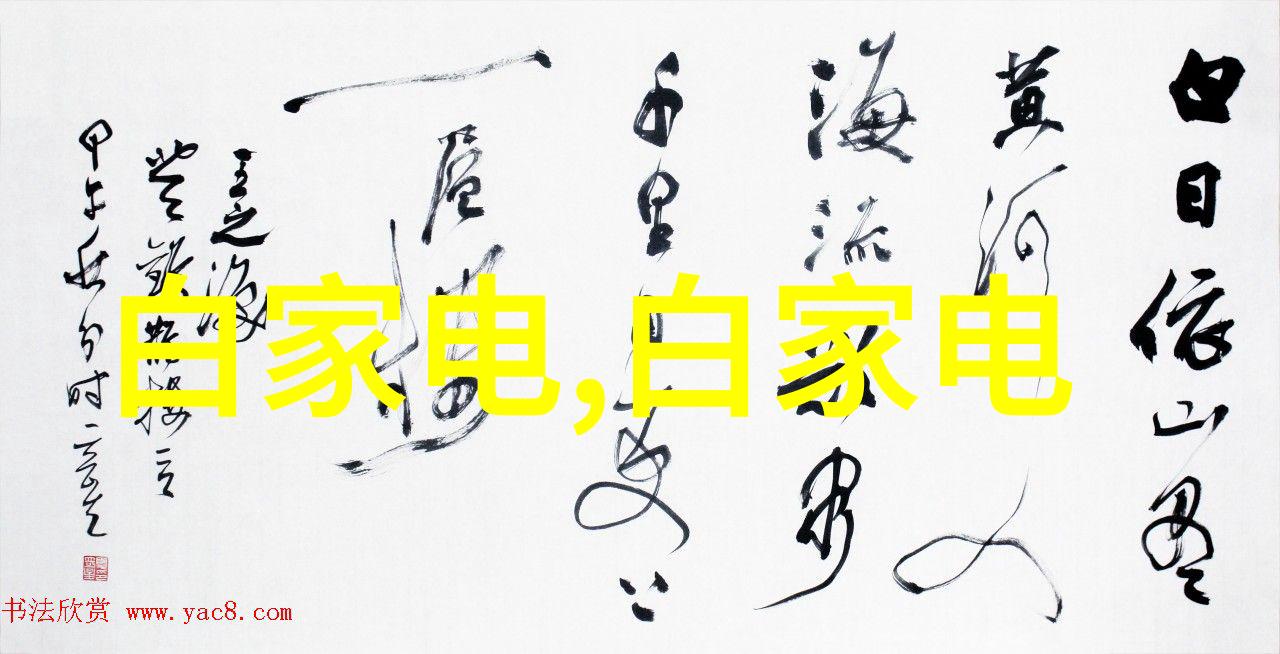 白日依山尽
黄河入
海流欲穷
千里目更上
一层楼
王之涣
登鹳雀楼
甲午秋分时
白家电,白家电
书法欣赏 www.yac8.com